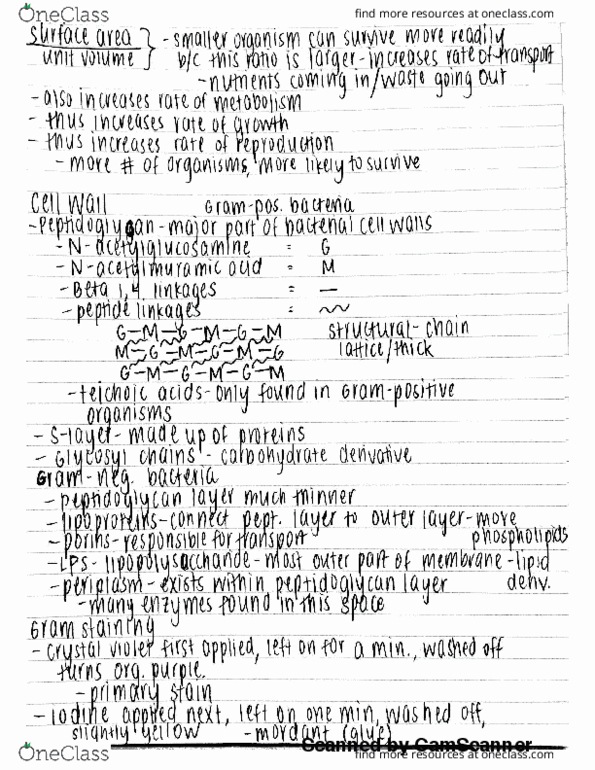 OneClass
find more resources at oneclass.com
surface area } - smaller organism can survive more readily
unit volume b/c this ratio is larger - increases rate of transport
- nutrients coming in/waste going out
- also increases rate of metabolism
- thus increases rate of growth
- thus increases rate of reproduction
- more # of organisms, more likely to survive
Cell Wall Gram-pos. bacteria
- Peptidoglycan - major part of bacterial cell walls
- N-acetylglucosamine = G
- N-acetylmuramic acid = M
- Beta 1,4 linkages = —
- peptide linkages = ~~
G-M-G-M-G-M structural-chain
M-G-M-G-M-G lattice/thick
G-M-G-M-G-M
- teichoic acids - only found in Gram-positive
organisms
- S-layer - made up of proteins
- Glycosyl chains - carbohydrate derivative
Gram-neg. bacteria
- peptidoglycan layer much thinner
- lipoproteins - connect pept. layer to outer layer - more
- porins - responsible for transport phospholipids
- LPS - lipopolysaccharide - most outer part of membrane - lipid
- periplasm - exists within peptidoglycan layer deriv.
- many enzymes found in this space
Gram staining
- crystal violet first applied, left on for a min., washed off
turns org. purple.
- primary stain
- Iodine applied next, left on one min, washed off,
slightly yellow - mordant (glue)
Scanned by CamScanner
OneClass
find more resources at oneclass.com